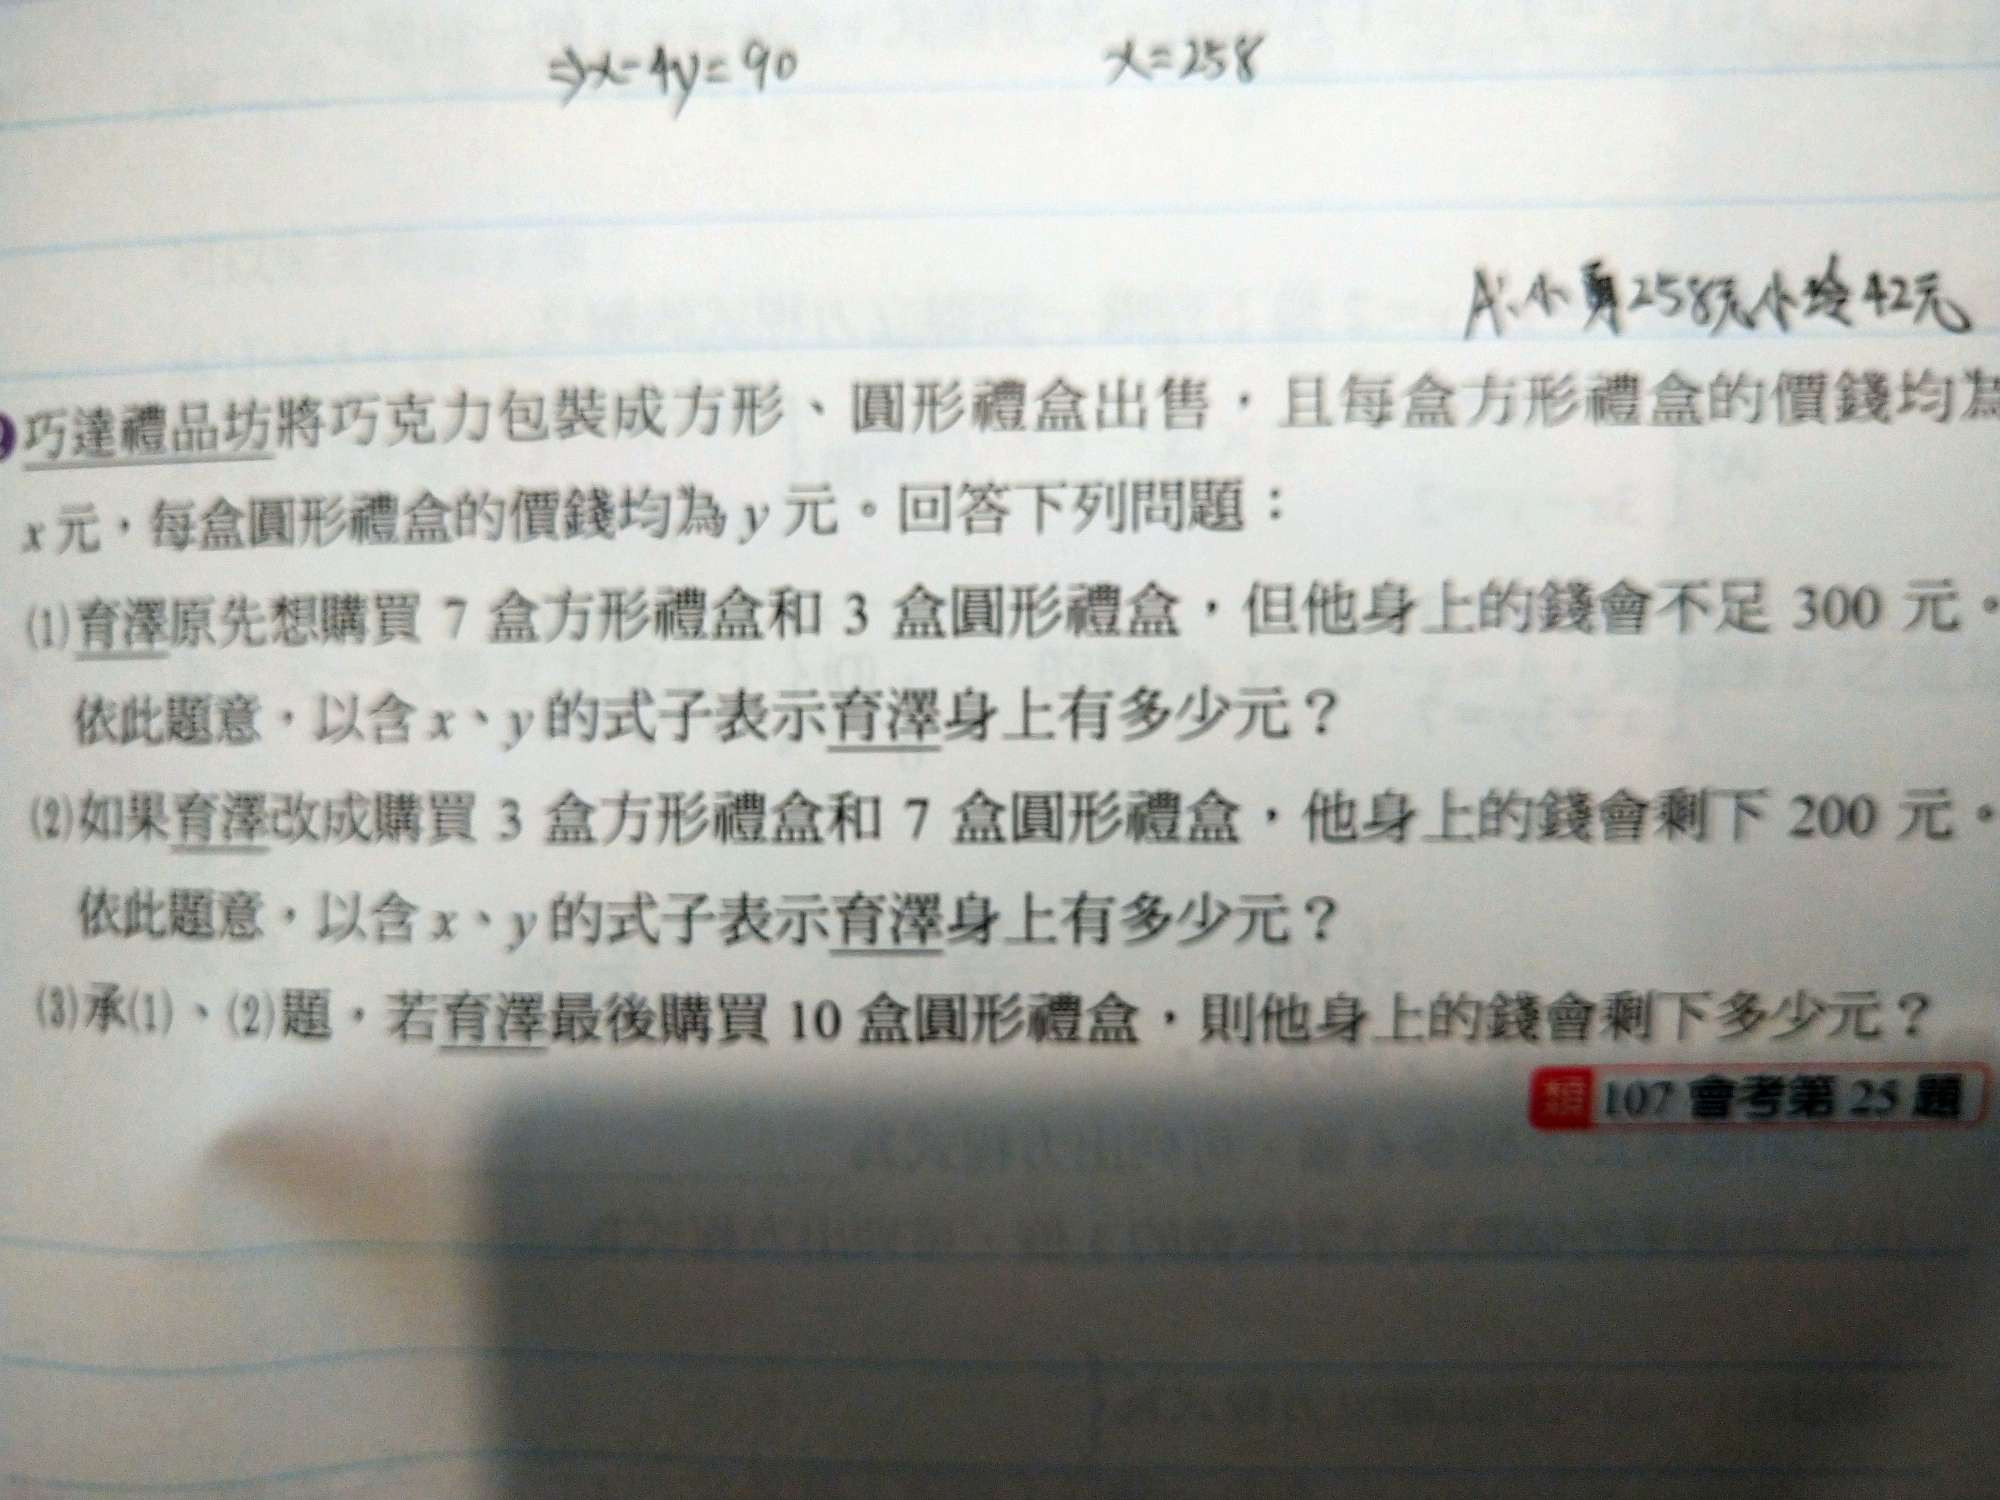 ⇒x-4y=90 x=258
A:小 258元小玲42元
巧達禮品坊將巧克力包裝成方形、圓形禮盒出售，且每盒方形禮盒的價錢均為
x元，每盒圓形禮盒的價錢均為y元。回答下列問題：
(1)育澤原先想購買 7 盒方形禮盒和 3 盒圓形禮盒，但他身上的錢會不足 300 元。
依此題意，以含x、y的式子表示育澤身上有多少元？
(2)如果育澤改成購買 3 盒方形禮盒和 7 盒圓形禮盒，他身上的錢會剩下 200 元。
依此題意，以含x、y的式子表示育澤身上有多少元？
(3)承(1)、(2)題，若育澤最後購買 10 盒圓形禮盒，則他身上的錢會剩下多少元？
類 107 會考第 25 題